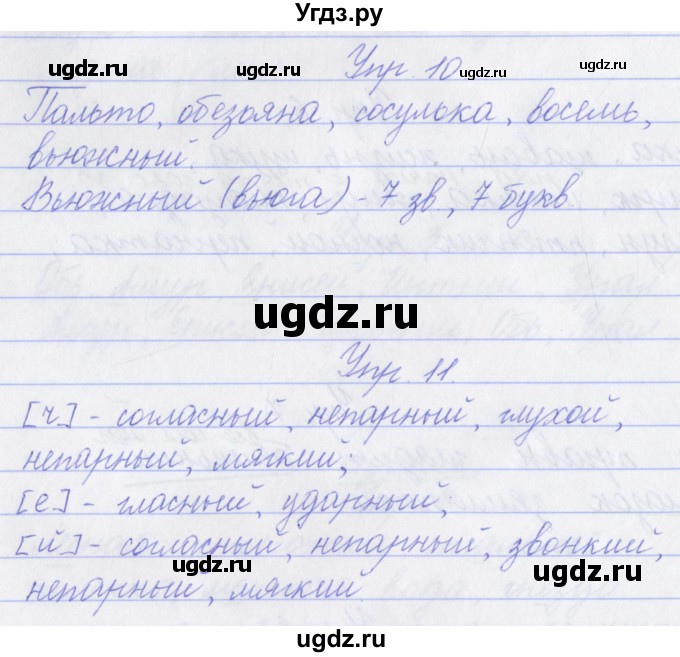 Угдз.ру
ugdz.ru
ugdz.ru
Упр. 10
ugdz.ru
ugdz.ru
Пальто, обезьяна, сосулька, восемь,
вьюжный.
Вьюжный (вьюга) - 7 зв., 7 букв
ugdz.ru
Упр. 11.
[ч] - согласный, непарный, глухой,
непарный, мягкий;
[е] - гласный, ударный;
[й] - согласный, непарный, звонкий,
ugdz.ru
ugdz.ru
непарный, мягкий
ugdz.ru